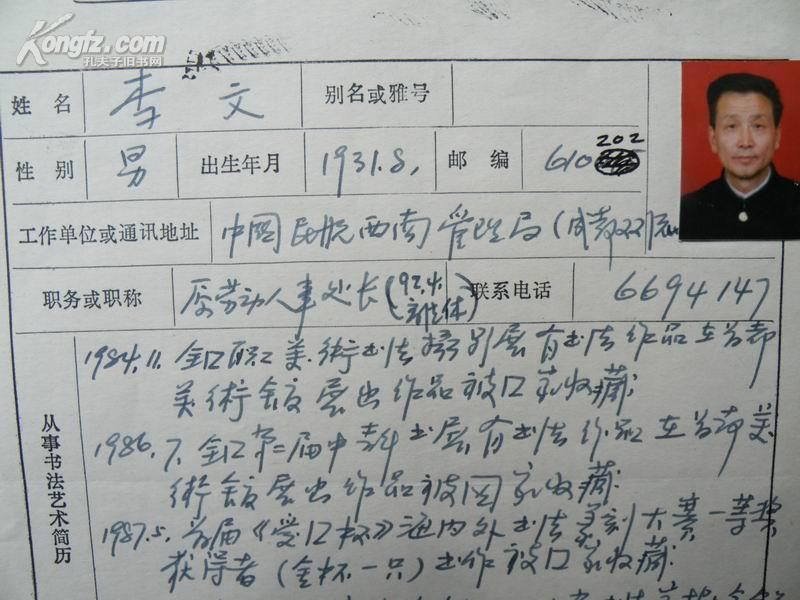 Kongfz.com
孔夫子旧书网
姓名 李文 别名或雅号
性别 男 出生年月 1931.8. 邮编 610202
工作单位或通讯地址 中國民航西南管理局(成都双流
职务或职称 原劳动人事处长(92.4.离休) 联系电话 6694147
从事书法艺术简历
1984.11. 全囗职工美術书法摄影展有书法作品在首都
美術舘展出作品被囗家收藏
1986.7. 全囗第二届中青年书展有书法作品在首都美
術舘展出作品被囯家收藏
1987.5. 首届《爱囗杯》海内外书法篆刻大赛一等奖
获得者(金杯一只)书作被囗家收藏